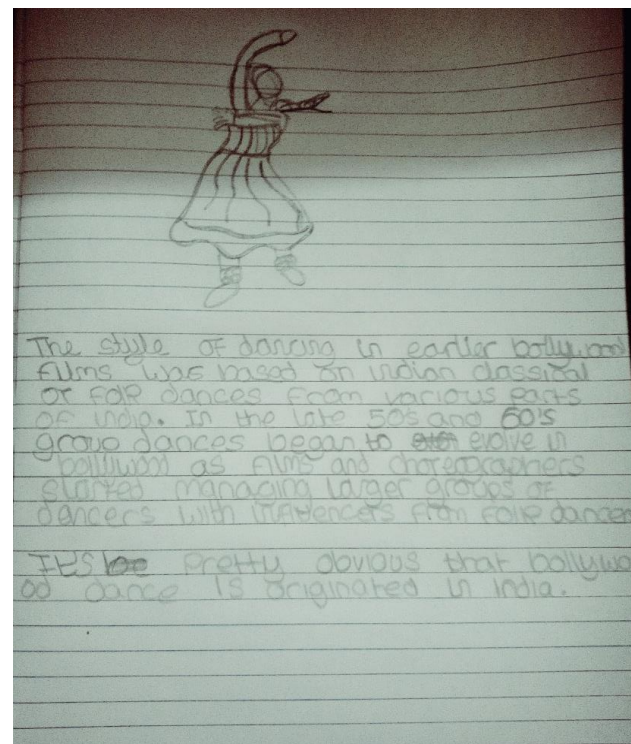 The style of dancing in earlier bollywood
films was based on indian classical
or folk dances from various parts
of india. In the late 50's and 60's
group dances began to evolve in
bollywood as films and choreographers
started managing larger groups of
dancers with influencers from folk dancer
It's pretty obvious that bollywo
od dance is originated in India.